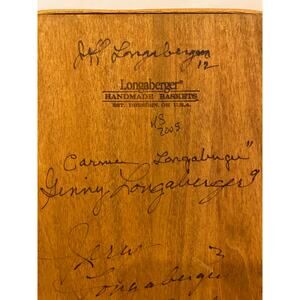 Jeff Longaberger
12
Longaberger®
HANDMADE BASKETS
EST. DRESDEN, OH U.S.A.
2005
Carmen Longaberger "
Ginny Longaberger 9
Drew 2
Longaberger